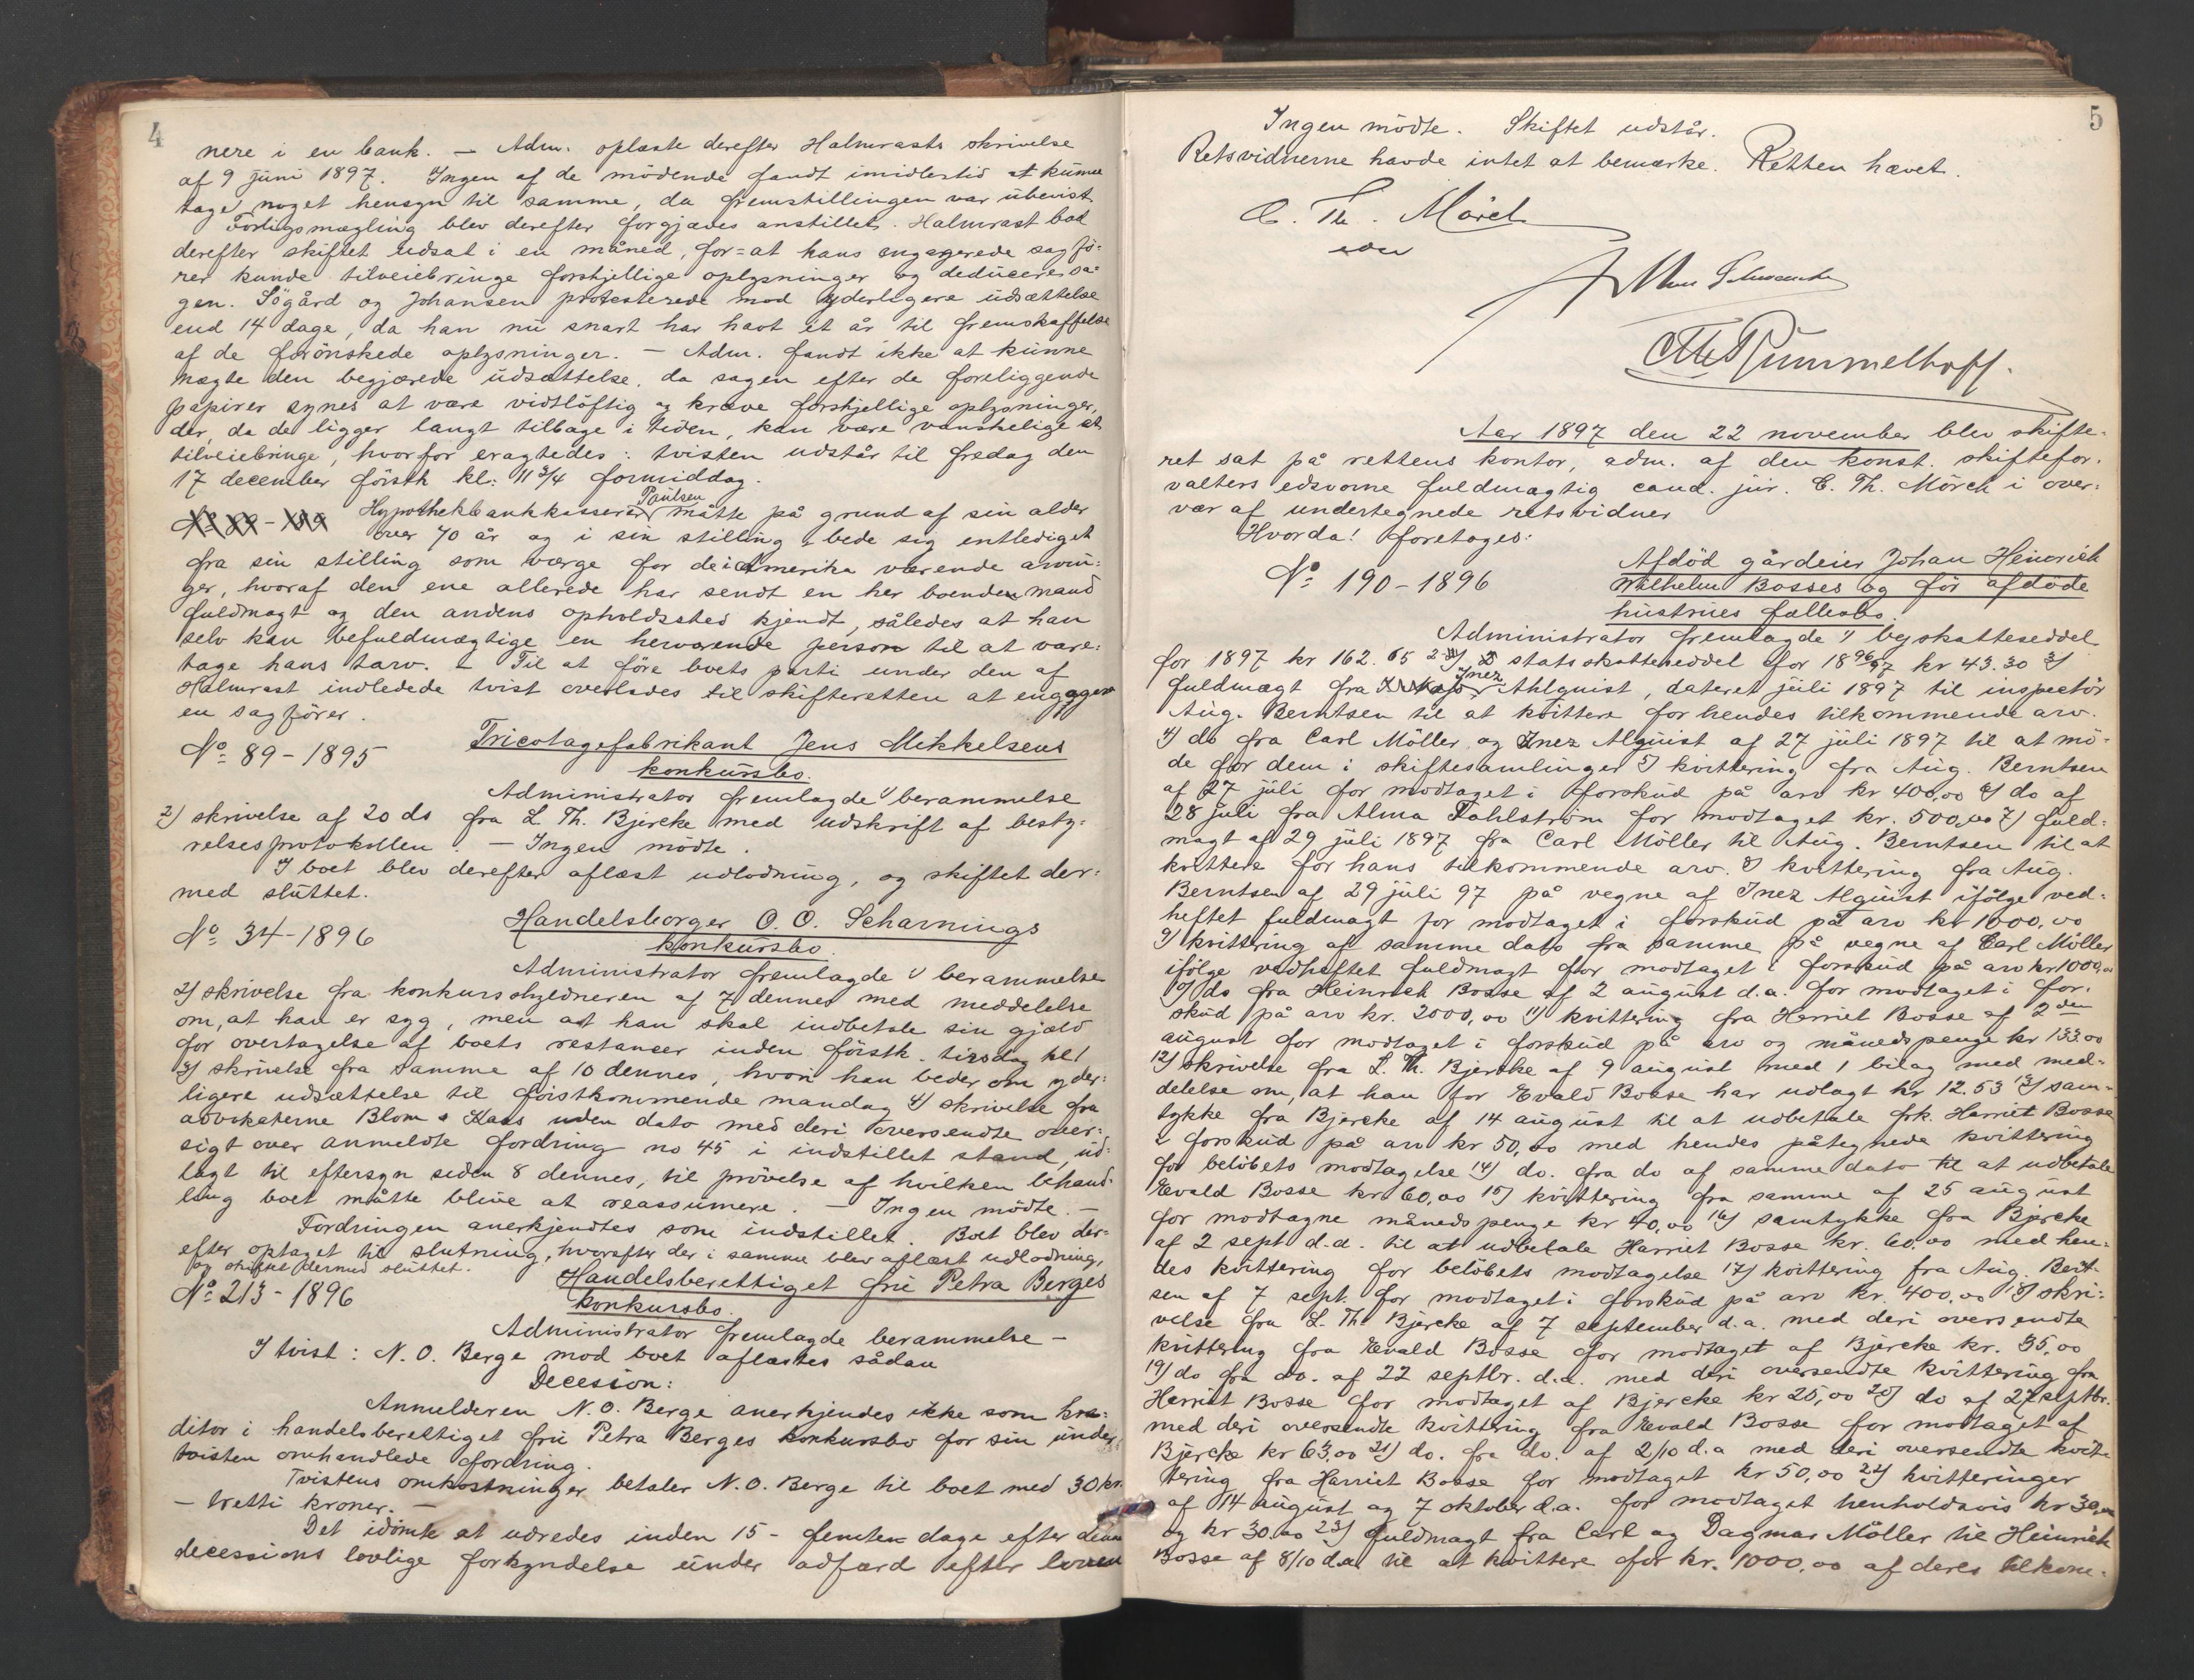 4
nere i en bank. — Adm. oplæste derefter Halmrasts skrivelse
af 9 juni 1897. Ingen af de mødende fandt imidlertid at kunne
tage noget hensyn til samme, da fremstillingen var ubevist.
Forligsmægling blev derefter forgjæves anstillet. Halmrast bad
derefter skiftet udsat i en måned, for=at hans engagerede sagfö=
rer kunde tilveiebringe forskjellige oplysninger og deducere sa=
gen. Sögård og Johansen protesterede mod yderligere udsættelse
end 14 dage, da han nu snart har havt et år til fremskaffelse
af de forönskede oplysninger. — Adm. fandt ikke at kunne
nægte den begjærede udsættelse, da sagen efter de foreliggende
papirer synes at være vidtlöftig og kræve forskjellige oplysninger,
der, da de ligger langt tilbage i tiden, kan være vanskelige at
tilveiebringe, hvorfor eragtedes: tvisten udstår til fredag den
17 december förstk kl: 11 3/4 formiddag.
Hypothekbankkasserer Paulsen måtte på grund af sin alder
over 70 år og i sin stilling bede sig entlediget
fra sin stilling som værge for de i Amerika værende arvin=
ger, hvoraf den ene allerede har sendt en her boende mand
fuldmagt og den andens opholdssted kjendt, således at han
selv kan befuldmægtige en herværende person til at vare=
tage hans tarv. — Til at före boets parti under den af
Halmrast indledede tvist overlodes til skifteretten at engagere
en sagförer.
No 89 - 1895 Tricotagefabrikant Jens Mikkelsens
konkursbo.
Administrator fremlagde 1) berammelse
2) skrivelse af 20 ds fra L. Th. Bjercke med udskrift af besty=
relsesprotokollen. — Ingen mödte.
I boet blev derefter aflæst udlodning, og skiftet der=
med sluttet.
No 34 - 1896 Handelsborger O. O. Scharnings
konkursbo.
Administrator fremlagde 1) berammelse
2) skrivelse fra konkursskyldneren af 7 dennes med meddelelse
om, at han er syg, men at han skal indbetale sin gjæld
for overtagelse af boets restancer inden förstk. tirsdag kl 1
3) skrivelse fra samme af 10 dennes, hvori han beder om yder=
ligere udsættelse til förstkommende mandag 4) skrivelse fra
advokaterne Blom & Kaas uden dato med deri oversendte over=
sigt over anmeldte fordring no 45 i indstillet stand, ud=
lagt til eftersyn siden 8 dennes, til prövelse af hvilken behand=
ling boet måtte blive at reassumere. — Ingen mödte. —
Fordringen anerkjendtes som indstillet. Boet blev der=
efter optaget til slutning, hvorefter der i samme blev aflæst udlodning,
og skiftet dermed sluttet.
No 213 - 1896 Handelsberettiget fru Petra Berges
konkursbo.
Administrator fremlagde berammelse —
I tvist: N. O. Berge mod boet aflæstes sådan
Decesion:
Anmelderen N. O. Berge anerkjendes ikke som kre=
ditor i handelsberettiget fru Petra Berges konkursbo for sin under
tvisten omhandlede fordring.
Tvistens omkostninger betaler N. O. Berge til boet med 30 kr.
— tretti kroner. —
Det idömte at udredes inden 15 - femten dage efter denne
decessions lovlige forkyndelse under adfærd efter loven
5
Ingen mödte. Skiftet udstår.
Retsvidnerne havde intet at bemærke. Retten hævet.
C. Th. Mörch
Rummelhoff.
Aar 1897 den 22 november blev skifte=
ret sat på rettens kontor, adm. af den konst. skiftefor=
valters edsvorne fuldmægtig cand. jur. C. Th. Mörch i over=
vær af undertegnede retsvidner
Hvorda! foretoges:
No 190 - 1896 Afdöd gårdeier Johan Heinrich
Wilhelm Bosses og för afdöde
hustrues fællesbo.
Administrator fremlagde 1) byskatteseddel
for 1897 kr 162.65 2) statsskatteseddel for 1896/97 kr 43.30 3)
fuldmagt fra Inez Ahlquist, dateret juli 1897 til inspectör
Aug. Berntsen til at kvittere for hendes tilkommende arv.
4) do fra Carl Möller og Inez Alquist af 27 juli 1897 til at mö=
de for dem i skiftesamlinger 5) kvittering fra Aug. Berntsen
af 27 juli for modtaget i forskud på arv kr 400,00 6) do af
28 juli fra Alma Fahlström for modtaget kr. 500,00 7) fuld=
magt af 29 juli 1897 fra Carl Möller til Aug. Berntsen til at
kvittere for hans tilkommende arv. 8) kvittering fra Aug.
Berntsen af 29 juli 97 på vegne af Inez Alquist ifölge ved=
heftet fuldmagt for modtaget i forskud på arv kr 1000,00
9) kvittering af samme dato fra samme på vegne af Carl Möller
ifölge vedheftet fuldmagt for modtaget i forskud på arv kr 1000,00
10) do fra Heinrich Bosse af 2 august d.a. for modtaget i for=
skud på arv kr. 2000,00 11) kvittering fra Harriet Bosse af 2den
august for modtaget i forskud på arv og månedspenge kr 133.00
12) skrivelse fra L. Th. Bjercke af 9 august med 1 bilag med med=
delelse om, at han for Ewald Bosse har udlagt kr 12.53 13) sam=
tykke fra Bjercke af 14 august til at udbetale frk. Harriet Bosse
i forskud på arv kr 50,00 med hendes påtegnede kvittering
for belöbets modtagelse 14) do. fra do af samme dato til at udbetale
Ewald Bosse kr 60,00 15) kvittering fra samme af 25 august
for modtagne månedspenge kr 40,00 16) samtykke fra Bjercke
af 2 sept d.a. til at udbetale Harriet Bosse kr. 60.00 med hen=
des kvittering for belöbets modtagelse 17) kvittering fra Aug. Bert=
sen af 7 sept. for modtaget i forskud på arv kr. 400,00 18) skri=
velse fra L. Th. Bjercke af 7 september d.a. med deri oversendte
kvittering fra Ewald Bosse for modtaget af Bjercke kr. 35,00
19) do fra do. af 22 septbr. d.a. med deri oversendte kvittering fra
Harriet Bosse for modtaget af Bjercke kr 25,00 20) do af 27 septbr.
med deri oversendte kvittering fra Ewald Bosse for modtaget af
Bjercke kr 63,00 21) do. fra do. af 2/10 d.a med deri oversendte kvit=
tering fra Harriet Bosse for modtaget kr 50,00 22) kvitteringer
af 14 august og 7 oktober d.a. for modtaget henholdsvis kr 30,00
og kr 30.00 23) fuldmagt fra Carl og Dagmar Möller til Heinrich
Bosse af 8/10 d.a. til at kvittere for kr. 1000,00 af deres tilkom=